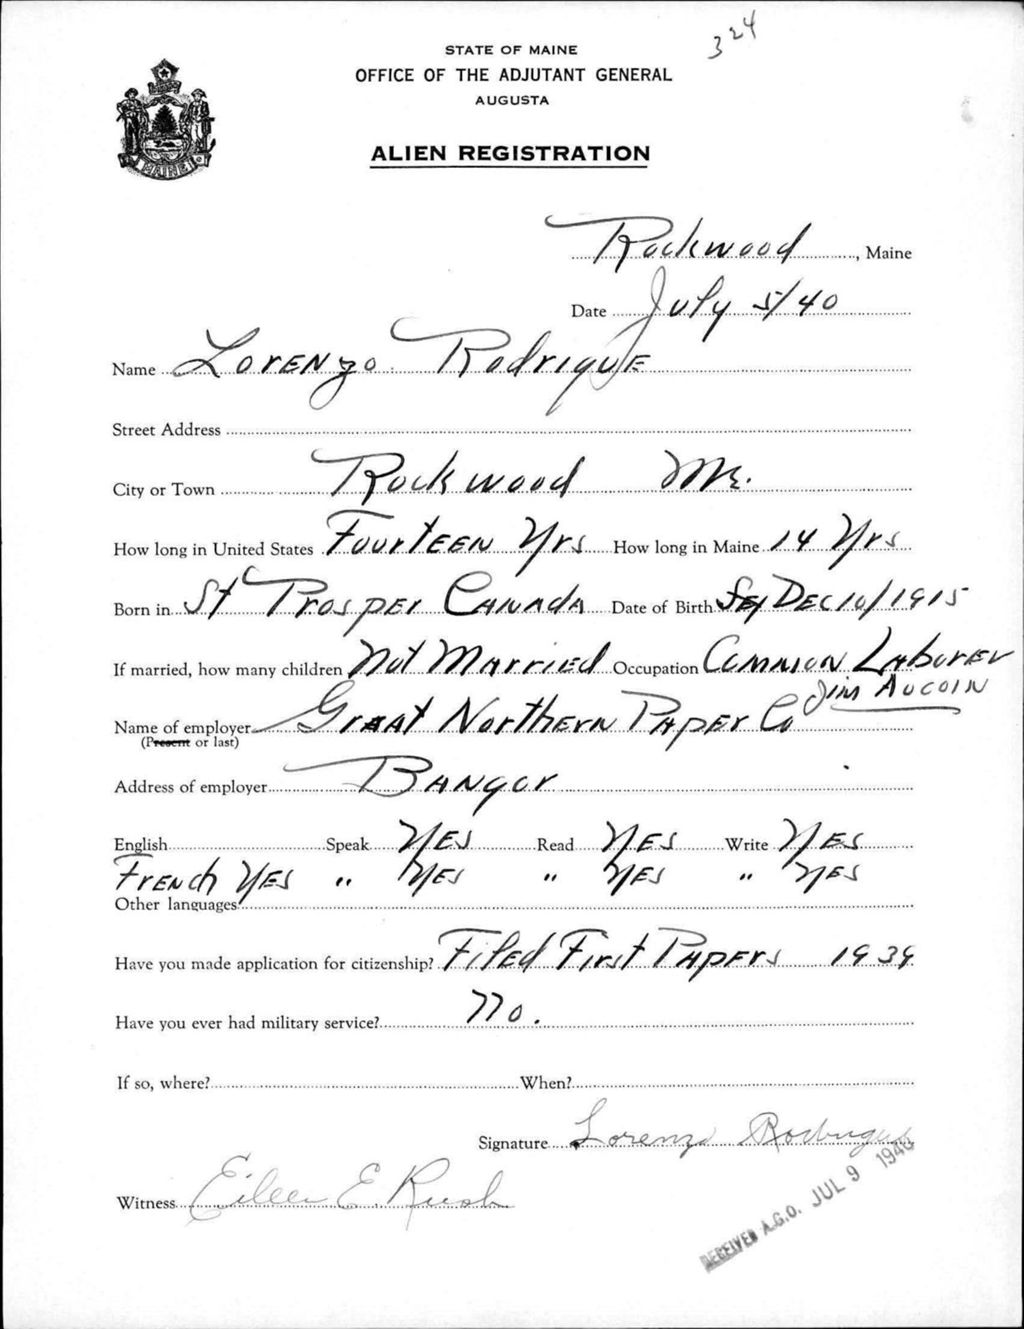 324
STATE OF MAINE
OFFICE OF THE ADJUTANT GENERAL
AUGUSTA
MAINE
ALIEN REGISTRATION
Rockwood, Maine
Date July 5/40
Name Lorenzo Rodrigue
Street Address
City or Town Rockwood Me.
How long in United States Fourteen Yrs How long in Maine 14 Yrs
Born in St Prosper Canada Date of Birth Dec 10/1915
If married, how many children Not Married Occupation Common Laborer
Jim Aucoin
Name of employer Great Northern Paper Co
(Present or last)
Address of employer Bangor
English Speak Yes Read Yes Write Yes
French Yes " Yes " Yes " Yes
Other languages
Have you made application for citizenship? Filed First Papers 1939
Have you ever had military service? No.
If so, where? When?
Signature Lorenzo Rodrigue
Witness Eileen E. Rush
RECEIVED A.G.O. JUL 9 1940